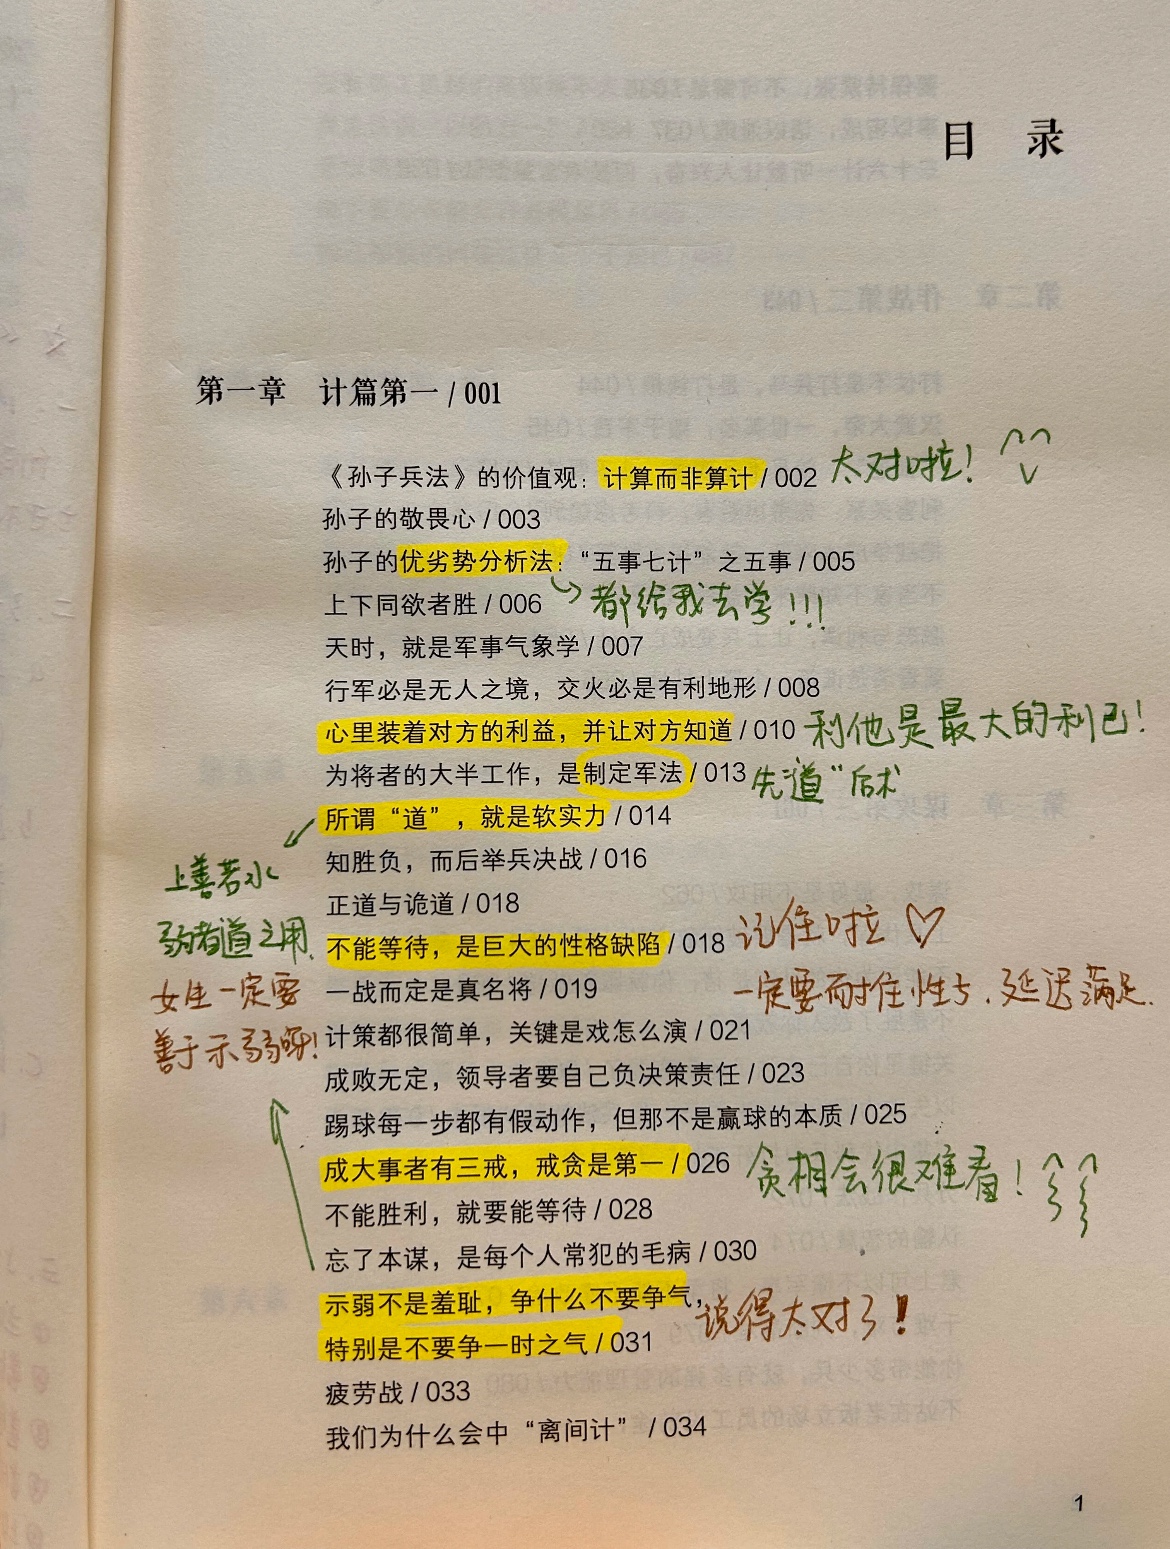 目 录
第一章 计篇第一 / 001
《孙子兵法》的价值观：计算而非算计 / 002 太对啦！
孙子的敬畏心 / 003
孙子的优劣势分析法：“五事七计”之五事 / 005
上下同欲者胜 / 006 都给我去学!!!
天时，就是军事气象学 / 007
行军必是无人之境，交火必是有利地形 / 008
心里装着对方的利益，并让对方知道 / 010 利他是最大的利己！
为将者的大半工作，是制定军法 / 013 先“道”后术
所谓“道”，就是软实力 / 014
上善若水
知胜负，而后举兵决战 / 016
正道与诡道 / 018
弱者道之用.
不能等待，是巨大的性格缺陷 / 018 记住啦♡
女生一定要
一战而定是真名将 / 019 一定要耐住性子、延迟满足.
善于示弱呀！
计策都很简单，关键是戏怎么演 / 021
成败无定，领导者要自己负决策责任 / 023
踢球每一步都有假动作，但那不是赢球的本质 / 025
成大事者有三戒，戒贪是第一 / 026 贪相会很难看！
不能胜利，就要能等待 / 028
忘了本谋，是每个人常犯的毛病 / 030
示弱不是羞耻，争什么不要争气， 说得太对了！
特别是不要争一时之气 / 031
疲劳战 / 033
我们为什么会中“离间计” / 034
1